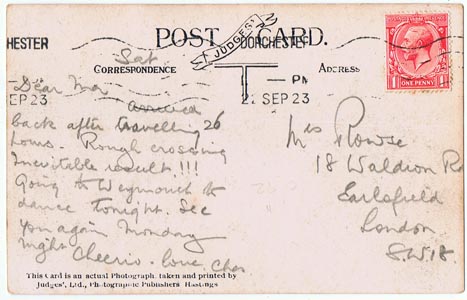 POST CARD.
JUDGES'
CHESTER
DORCHESTER
CORRESPONDENCE
ADDRESS
PM
SEP 23
22 SEP 23
ONE PENNY
Sat.
Dear Ma
Arrived
back after travelling 26
hours. Rough crossing
Inevitable result!!!
Going to Weymouth to
dance tonight. See
you again Monday
night Cheerio. Love Chas
Mrs Rowse
18 Waldron Rd
Earlsfield
London
S.W.18.
This Card is an actual Photograph, taken and printed by
Judges', Ltd., Photographic Publishers Hastings